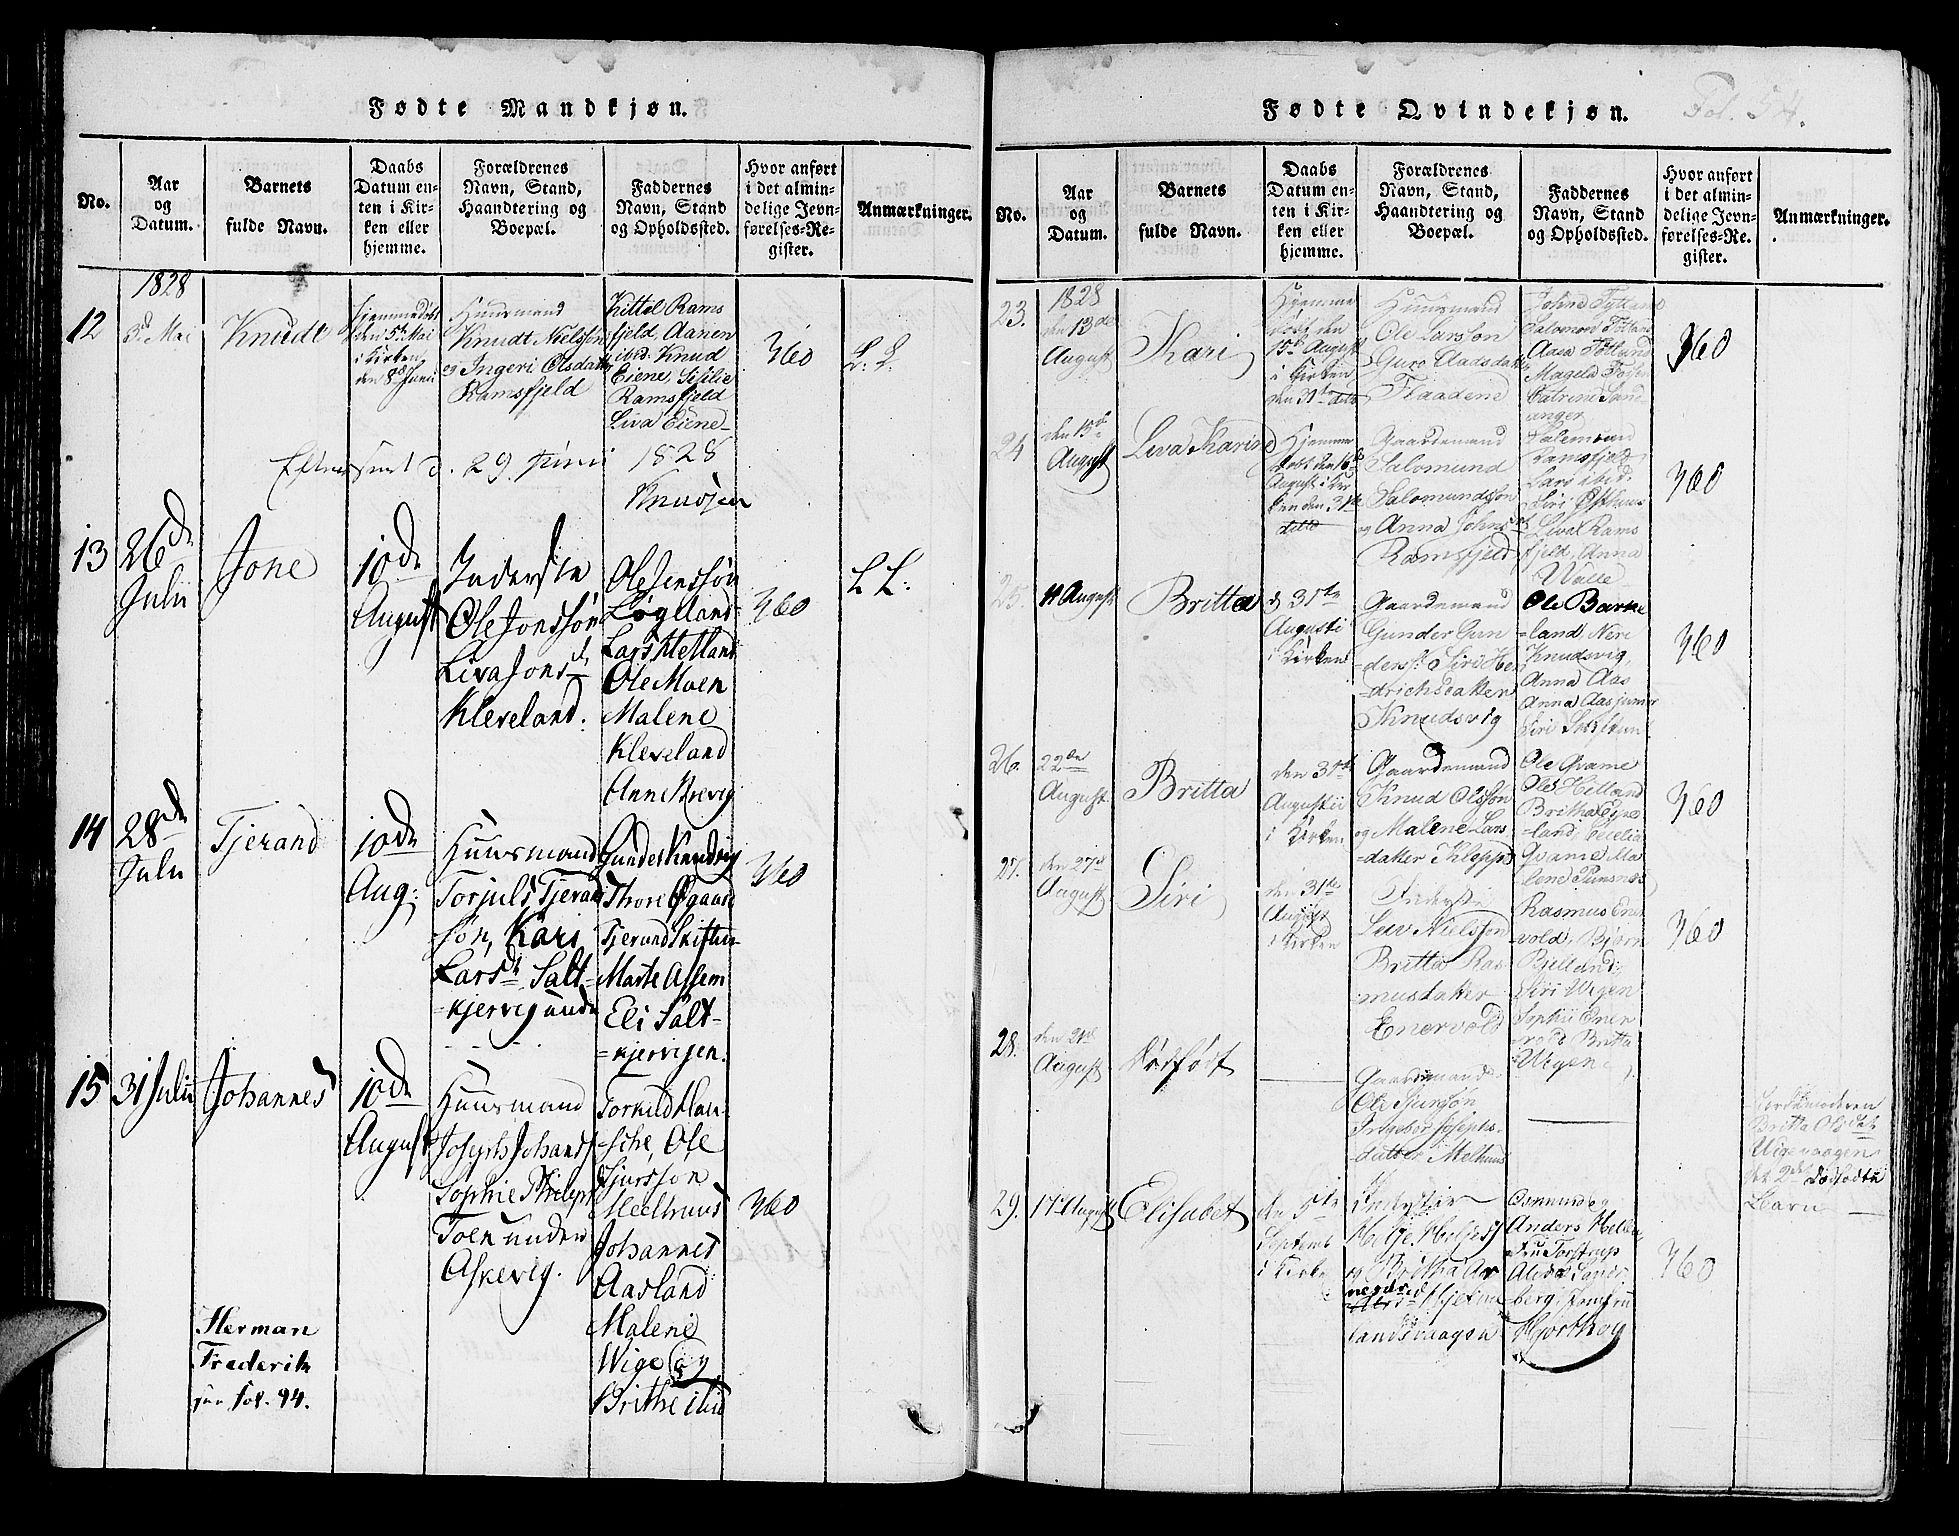 Fødte Mandkjøn.
No.
Aar
og
Datum.
Barnets
fulde Navn.
Daabs
Datum en-
ten i Kir-
ken eller
hjemme.
Forældrenes
Navn, Stand,
Haandtering og
Boepæl.
Faddernes
Navn, Stand
og Opholdssted.
Hvor anført
i det almin-
delige Jevn-
førelses-Re-
gister.
Anmærkninger.
12
1828
3d Mai
Knudt
Hjemmedøbt
den 5te Mai
i Kirken
den 8de Juni
Huusmand
Knudt Nielssøn
og Ingeri Olsdatter
Ramsfjeld
Kittel Rams
fjeld, Aanen
ibid. Knud
Eiene, Sisilie
Ramsfjeld
Liva Eiene
360
L. L.
Efterseet d. 29 Juni 1828
Knudsen
13
26de
Julii
Jone
10de
August
Inderste
Ole Jonssøn
Liva Jonsd
Kleveland.
Ole Jenssøn
Løgeland
Lars Hetland
Ole Moen
Malene
Kleveland
Anne Brevig
360
L L.
14
28de
Julii
Tjerand
10de
Aug:
Huusmand
Torjuls Tjerand
-søn, Kari
Larsdt Salt-
=kjervig unde
Gunder Knudsvig
Thore Øgaard
Tjerand Skiftun
Marte Assem
Eli Salt-
=kjervigen.
360
15
31 Julii
Johannes
10de
August
Huusmand
Joseph Johans
Sophie Philips
Toen under
Askevig.
Torkild Hau-
=sche, Ole
Sjurssøn
Meelhuus
Johannes
Aasland
Malene
Wige og
Brithe ibid
360
Herman
Frederik
see fol. 94.
Fødte Qvindekjøn.
Fol. 54.
No.
Aar
og
Datum.
Barnets
fulde Navn.
Daabs
Datum en-
ten i Kir-
ken eller
hjemme.
Forældrenes
Navn, Stand,
Haandtering og
Boepæl.
Faddernes
Navn, Stand
og Opholdssted.
Hvor anført
i det almin-
delige Jevn-
førelses-Re-
gister.
Anmærkninger.
23.
1828
den 13de
August
Kari
Hjemme
døbt den
15de August
i Kirken
den 31te dette
Huusmand
Ole Larssøn
Guro Aadsdatter
Flaadene
Johne Tytland
Salomon Totland
Aasa Totland
Magela Fosse
Catrine Sand
anger
360
24
den 15de
August
Liva Karine
Hjemme
døbt den 16de
August i Kir
ken den 31te
dette
Gaardemand
Salomund
Salomundssøn
og Anna Johnsd
Ramsfjeld
Salemund
Ramsfjeld
Lars ibid.
Siri Østhuus
Liva Rams
fjeld, Anna
Walle
360
25.
11 August
Britta
d 31te
Augusti
i Kirken
Gaardemand
Gunder Gun
dersn Siri He
drichsdatter
Knudsvig
Ole Barke
-land, Neri
Knudsvig,
Anna Aas
Anna Aas junior
360
26.
22de
August
Britta
den 31te
Augustii
i Kirken
Gaardemand
Knud Olssøn
og Malene Lars
-datter Klepps
Ole Qvame
Oles Hilland
Britha Eyne
-land, Cecelia
Qvame Ma
lene Punsnes
360
27.
den 27de
August
Siri
den 31te
August
i Kirken
Inderste
Seev Nielssøn
Britta Ras
musdatter
Enervold
Rasmus Ener
vold, Bjørn
Bjelland
Siri Wigen
Sophie Ener
vold Britta
Wigene
360
28.
den 21de
August
Dødfødt
Gaardemand
Ole Sjursøn
Ingebor Josephs-
datter Melhuus
Jordemoderen
Britta Olsdatter
det 2det dødfødte
Barn
29.
17de August
Elisabet
den 5te
Septemb
i Kirke
Inderster
Helje Heljes
og Britha Aar
Hjelme
landsvaagen
Osmund og
Anders Helle
Fru Torstrup
Alida Sover
berg, Jomfru
Hjorthøy
360